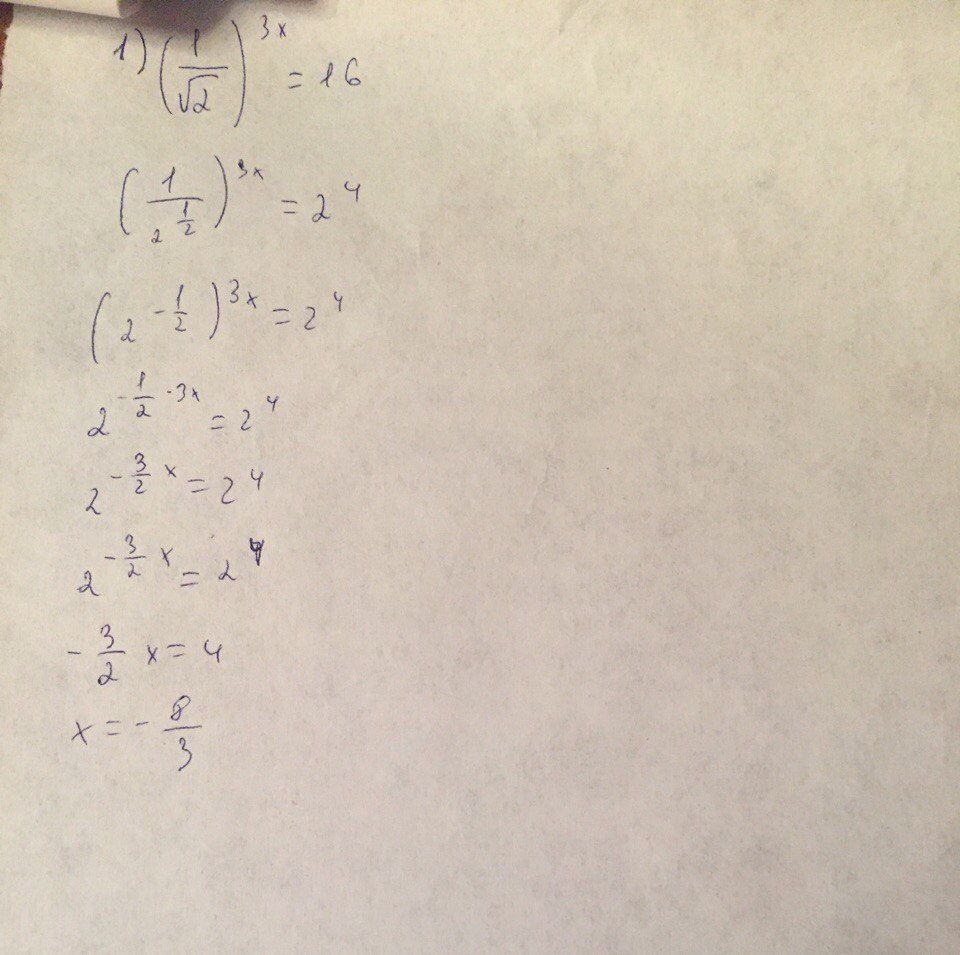 1) (1/√2)^3x = 16
(1/2^1/2)^3x = 2^4
(2^-1/2)^3x = 2^4
2^-1/2·3x = 2^4
2^-3/2 x = 2^4
2^-3/2 x = 2^4
-3/2 x = 4
x = -8/3